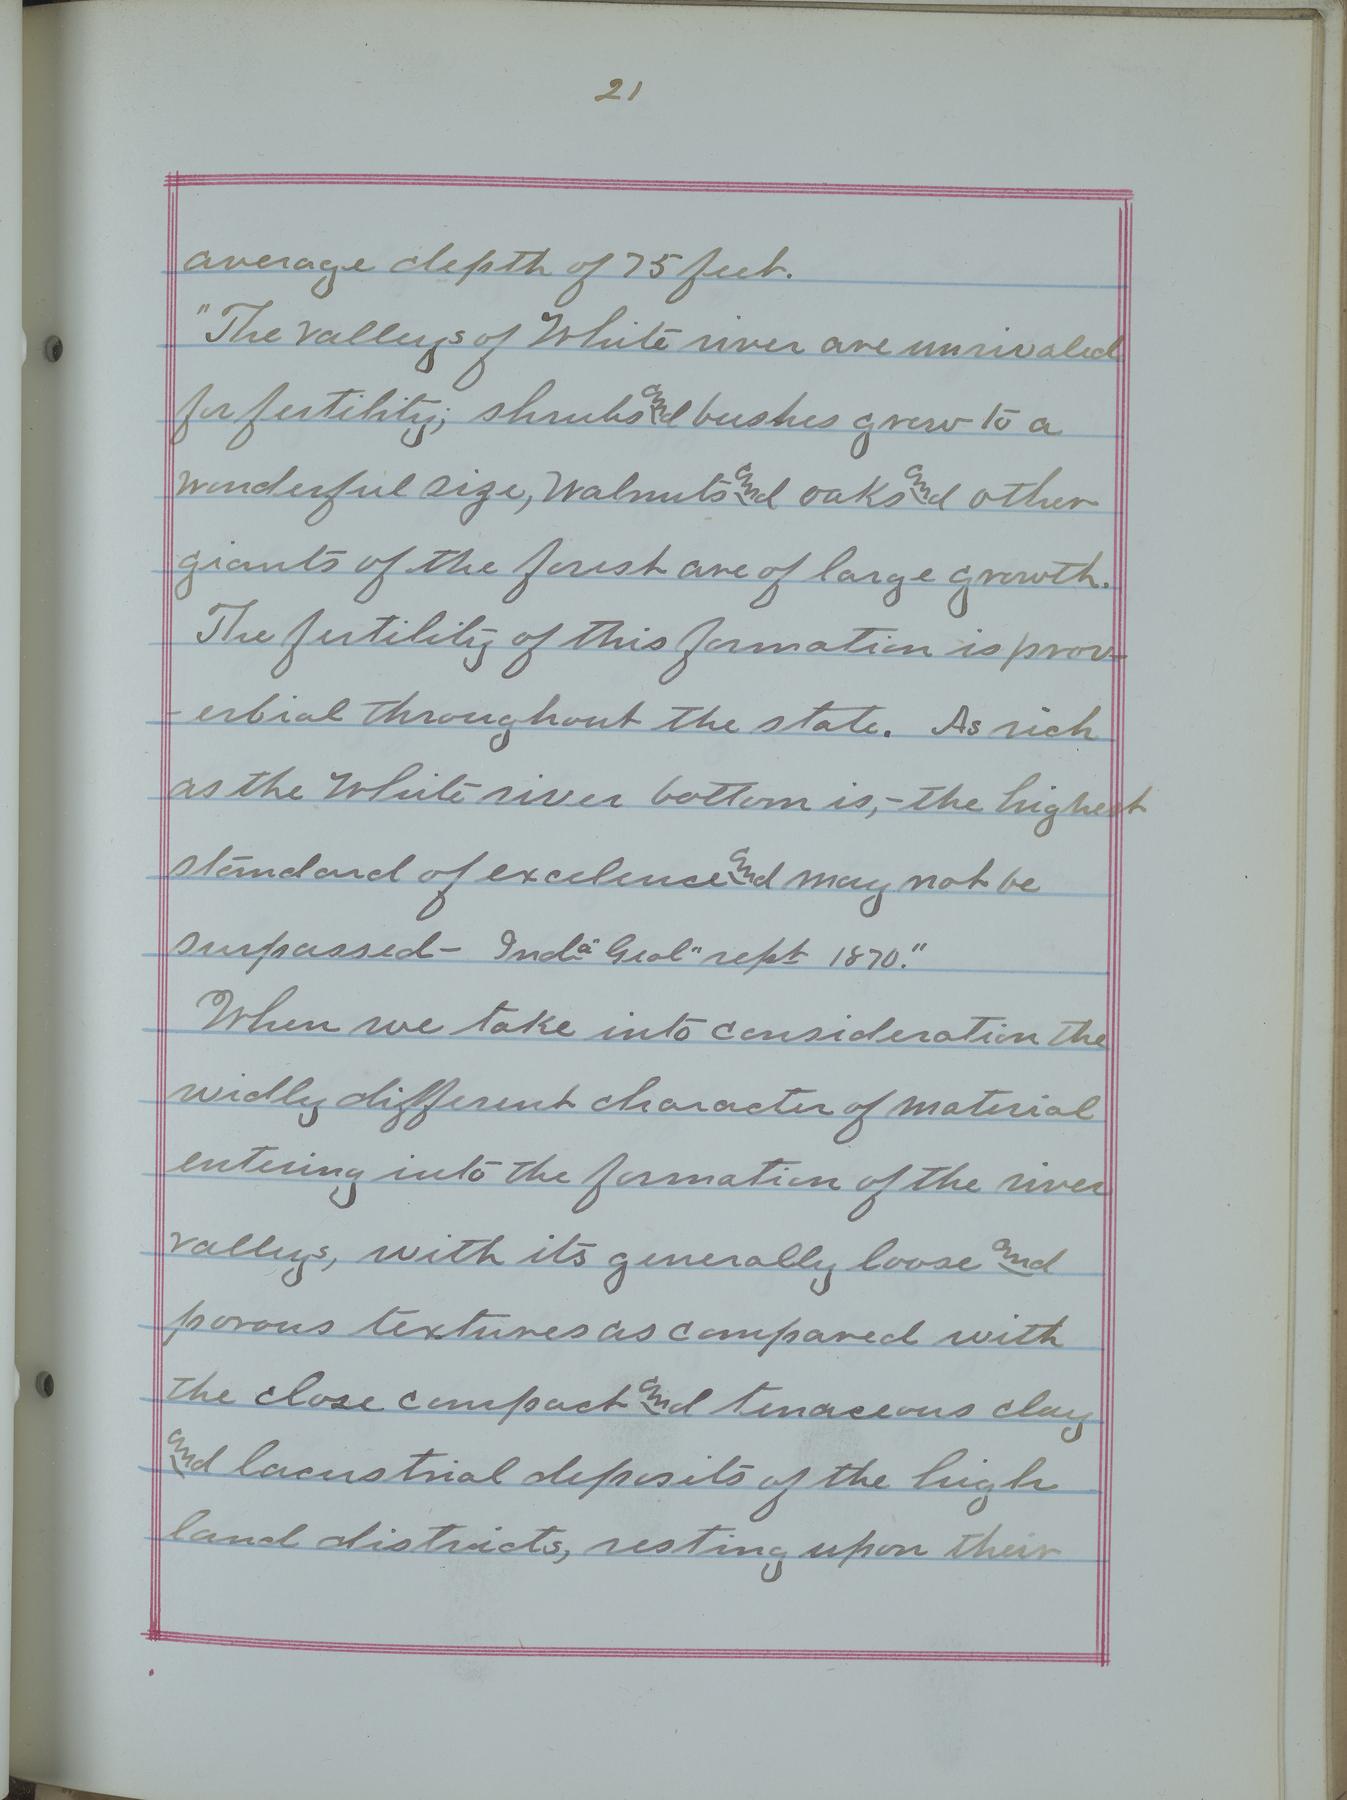 21
average depth of 75 feet.
"The valleys of White river are unrivaled
for fertility; shrubs and bushes grow to a
wonderful size, Walnuts and oaks and other
giants of the forest are of large growth.
The fertility of this formation is prov-
-erbial throughout the state. As rich
as the White river bottom is,- the highest
standard of excelence and may not be
surpassed- Inda Geol" rept 1870."
When we take into consideration the
widly different character of material
entering into the formation of the river
valleys, with its generally loose and
porous textures as compared with
the close compact and tenaceous clay
and lacustrial deposits of the high
land districts, resting upon their